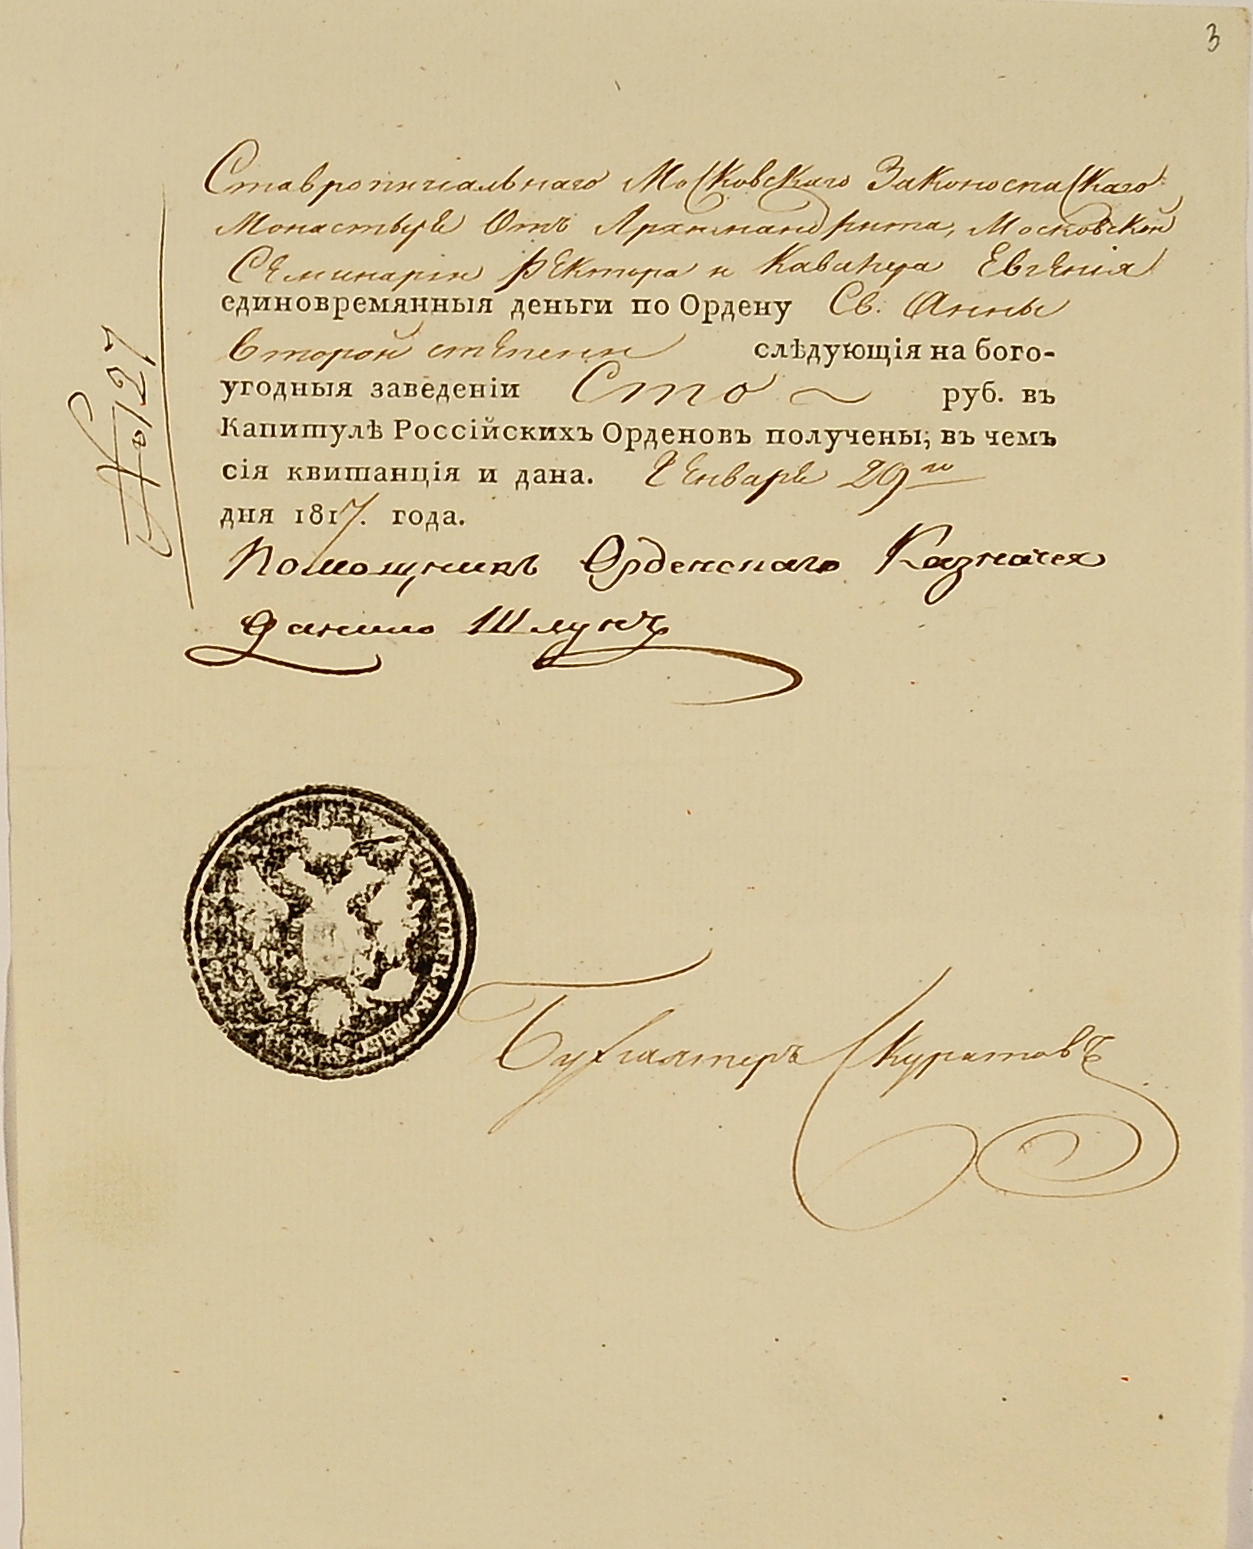 3
№ 127
Ставропигіальнаго Московскаго Законоспаскаго
Монастыря Отъ Архимандрита, Московской
Семинаріи Ректора и Кавалера Евгенія
единовремянныя деньги по Ордену Св. Анны
второй степени слѣдующія на бого-
угодныя заведеніи Сто руб. въ
Капитулѣ Россійскихъ Орденовъ получены; въ чемъ
сія квитанція и дана. Генваря 29го
дня 1817. года.
Помощникъ Орденскаго Казначея
Данило
Бухгалтеръ Скуратовъ